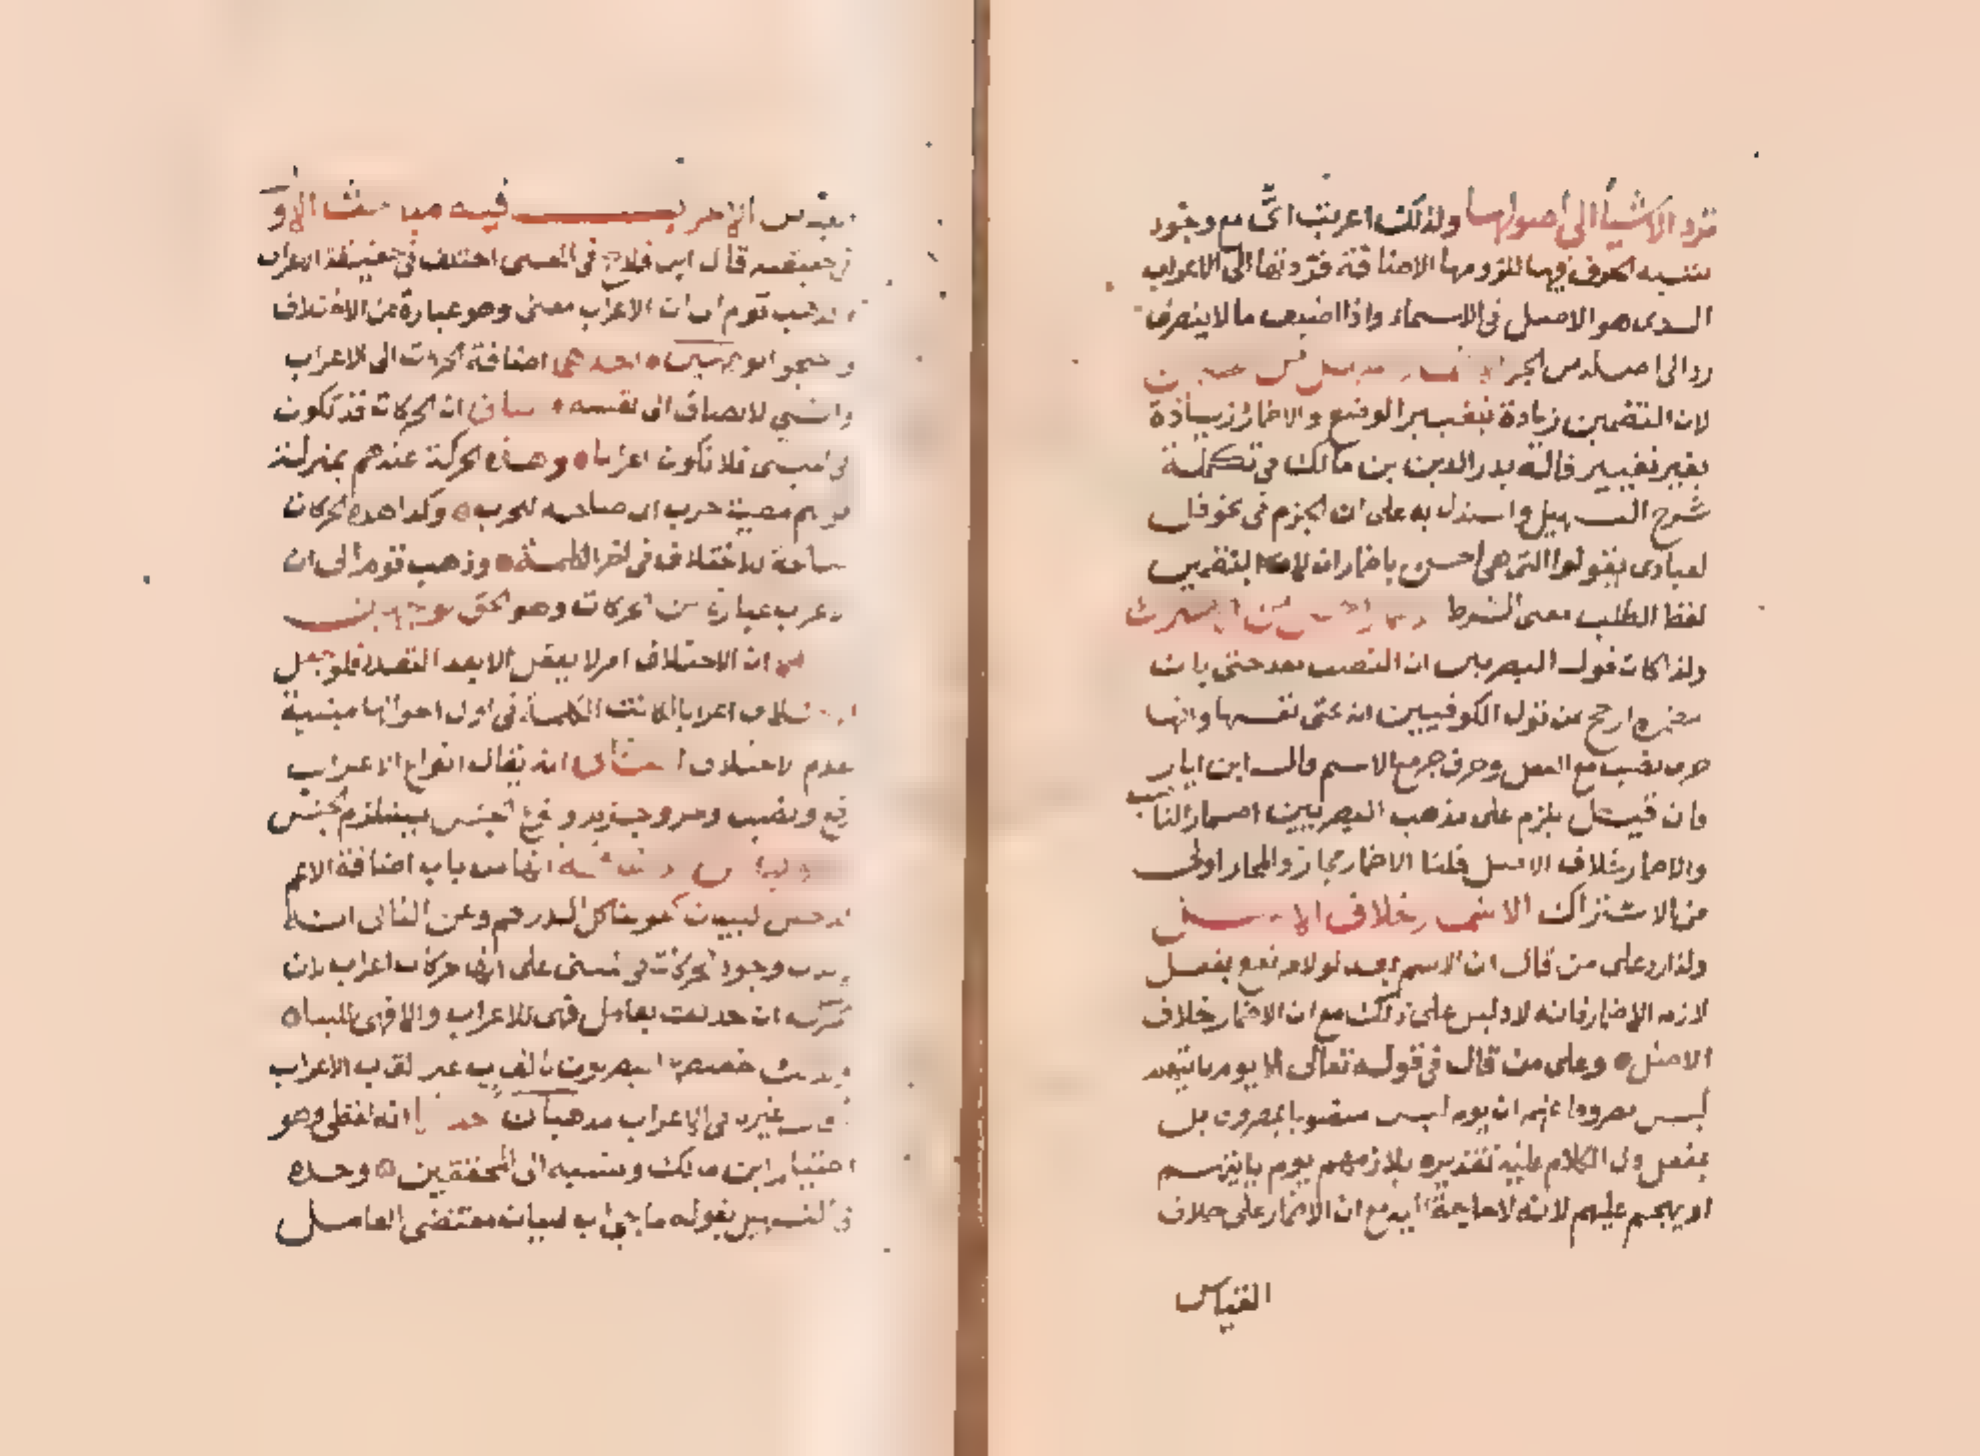 ترد الاشياء الى اصولها ولذلك اعربت اىّ مع وجود
شبه الحرف فيها للزومها الاضافة فردتها الى الاعراب
الذى هو الاصل فى الاسماء واذا اضيف ما لا ينصرف
رد الى اصله من الجر
لان التضمين زيادة بتغيير الوضع والاضمار زيادة
بغير تغيير قاله بدر الدين بن مالك فى تكملة
شرح التسهيل واستدل به على ان الجزم فى نحو قل
لعبادى يقولوا التى هى احسن باضمار ان لا بتضمين
لفظ الطلب معنى الشرط
ولذا كان قول البصريين ان النصب بعد حتى بان
مضمرة ارجح من قول الكوفيين انه بحتى نفسها وانها
حرف نصب مع الفعل وحرف جر مع الاسم قال ابن اياز
فان قيل يلزم على مذهب البصريين اضمار الناصب
والاضمار خلاف الاصل قلنا الاضمار مجاز والمجاز اولى
من الاشتراك الاضمار خلاف الاصل
ولذا رد على من قال ان الاسم بعد لولا مرتفع بفعل
لازم الاضمار فانه لا دليل على ذلك مع ان الاضمار خلاف
الاصل وعلى من قال فى قوله تعالى الا يوم ياتيهم
ليس مصروفا عنهم ان يوم ليس منصوبا بمصروف بل
بفعل دل الكلام عليه تقديره يلازمهم يوم ياتيهم
او يهجم عليهم لانه لا حاجة اليه مع ان الاضمار على خلاف
القياس
القياس الاعراب فيه مباحث الاو
فى حقيقته قال ابن فلاح فى المغنى اختلف فى حقيقة الاعراب
فذهب قوم الى ان الاعراب معنى وهو عبارة عن الاختلاف
واحتجوا بوجهين احدهما اضافة الحركات الى الاعراب
والشى لا يضاف الى نفسه والثانى ان الحركات قد تكون
فى المبنى فلا تكون اعرابا وهذه الحركة عندهم بمنزلة
قولهم مطية حرب اى صالحة للحرب وكذا هذه الحركات
صالحة للاختلاف فى اخر الكلمة وذهب قوم الى ان
الاعراب عبارة عن الحركات وهو الحق لوجهين
ان الاختلاف امر لا يعقل الا بعد التعدد فلو جعل
الاختلاف اعرابا لكانت الكلمة فى اول احوالها مبنية
لعدم الاختلاف الثانى انه يقال انواع الاعراب
رفع ونصب وجر وجزم ونوع الجنس يستلزم الجنس
انها من باب اضافة الاعم
الى الاخص للبيان كقولنا كل الدراهم وعن الثانى انه
لا يدل وجود الحركات فى المبنى على انها حركات اعراب لان
الحركة ان حدثت بعامل فهى للاعراب والا فهى للبناء
ولذلك خصص البصريون القاب غير القاب الاعراب
وقال غيره فى الاعراب مذهبان احدهما انه لفظى وهو
اختيار ابن مالك ونسبه الى المحققين وحده
فى التسهيل بقوله ما جىء به لبيان مقتضى العامل